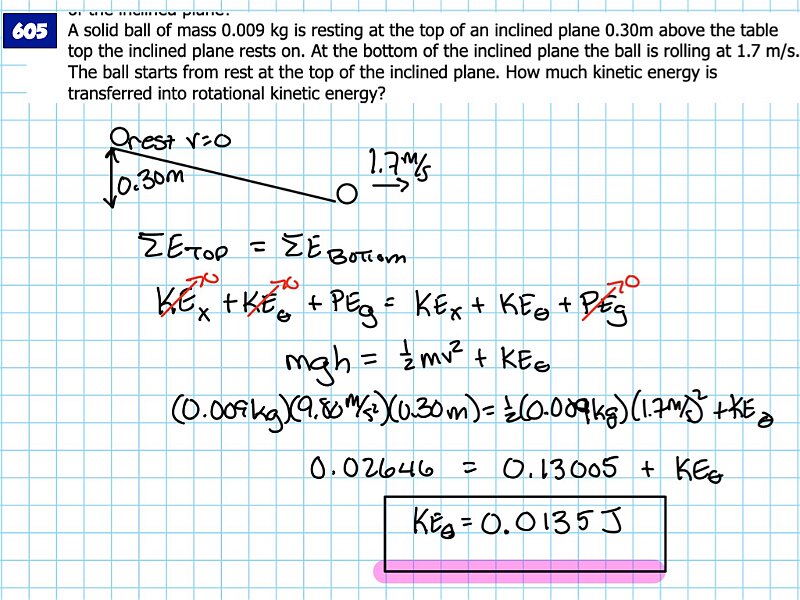 of the inclined plane?
605 A solid ball of mass 0.009 kg is resting at the top of an inclined plane 0.30m above the table
top the inclined plane rests on. At the bottom of the inclined plane the ball is rolling at 1.7 m/s.
The ball starts from rest at the top of the inclined plane. How much kinetic energy is
transferred into rotational kinetic energy?
rest v=0
1.7 m/s
0.30m
ΣE TOP = ΣE Bottom
KEx + KEθ + PEg = KEx + KEθ + PEg
0 0 0
mgh = ½mv² + KEθ
(0.009kg)(9.80 m/s²)(0.30m) = ½(0.009kg)(1.7m/s)² + KEθ
0.02646 = 0.13005 + KEθ
KEθ = 0.0135 J